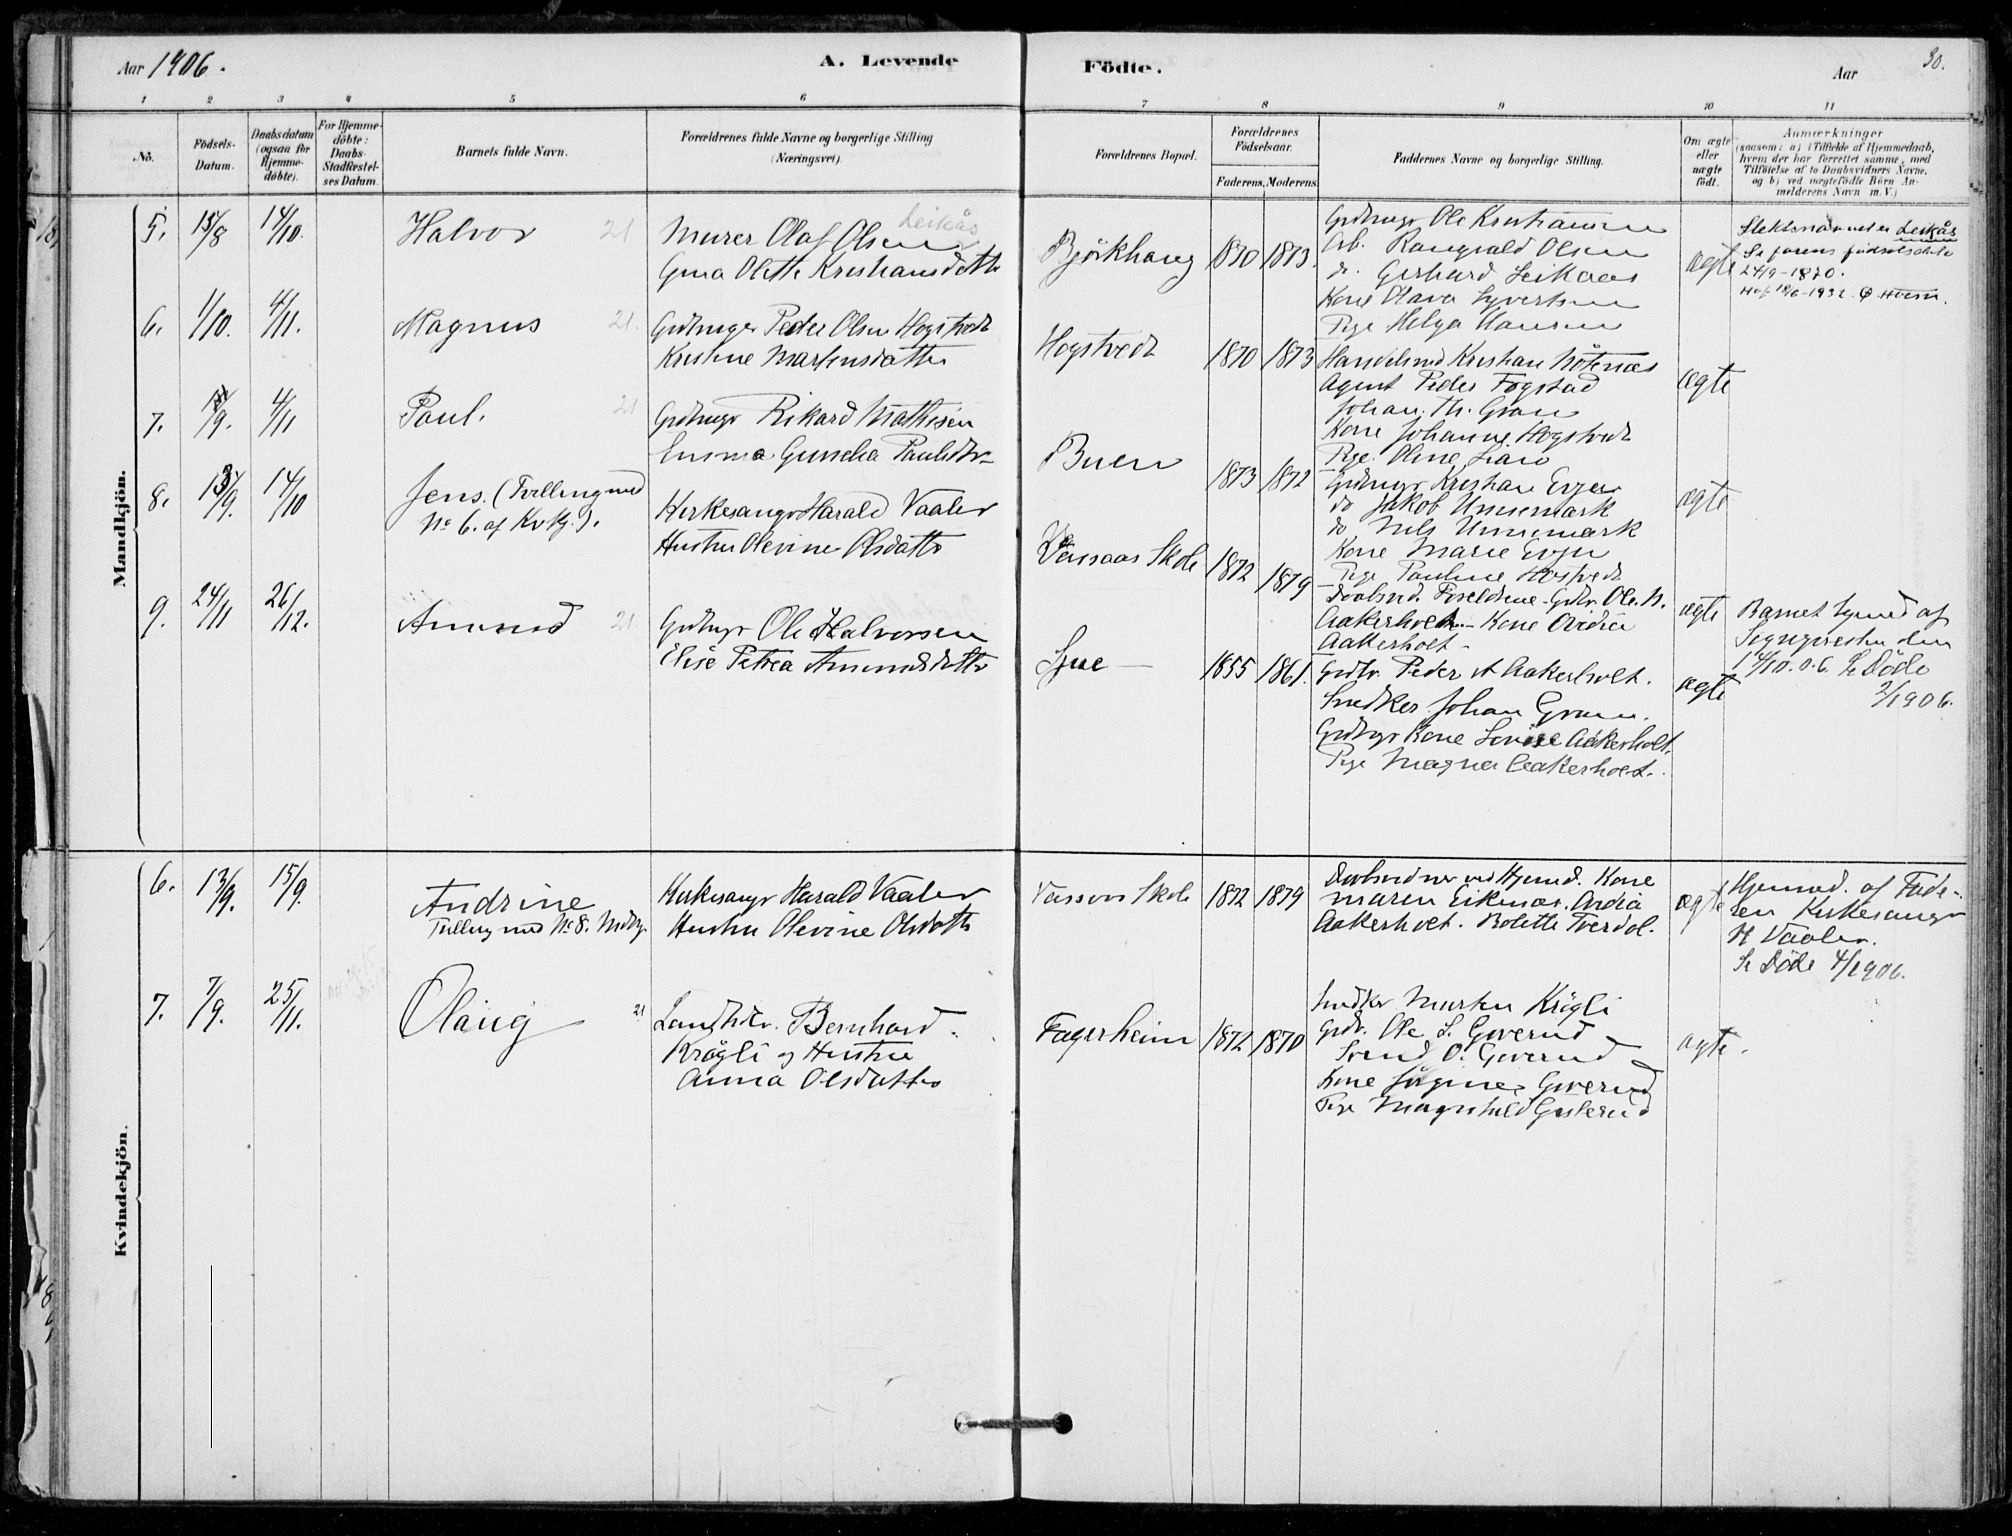 Aar 1906.
A. Levende
Födte.
Aar
30.
1 2 3 4 5 6 7 8 9 10 11
No.
Födsels-
Datum.
Daabsdatum
(ogsaa for
Hjemme-
döbte).
For Hjemme-
döbte:
Daabs-
Stadfæstel-
ses Datum.
Barnets fulde Navn.
Forældrenes fulde Navne og borgerlige Stilling
(Næringsvei).
Forældrenes Bopæl.
Forældrenes
Födselsaar.
Faderens. Moderens.
Faddernes Navne og borgerlige Stilling.
Om ægte
eller
uægte
födt.
Anmærkninger
(saasom: a) i Tilfælde af Hjemmedaab,
hvem der har forrettet samme, med
Tilföielse af to Daabsvidners Navne,
og b) ved uægtefödte Börn An-
melderens Navn m. V.)
Mandkjön.
5. 15/8 14/10. Halvor 21
Leikås
Murer Olaf Olsen
Gina Olette Kristiansdatter
Björkhaug 1870 1873.
Grdbruger Ole Kristiansen
Arb. Rangvald Olsen
do. Gerhard Leikaas
Kone Olava Syvertsen
Pige Helga Hansen
ægte
Slektsnavnet er Leikås
Se farens fødselsdato
24/9-1870.
6. 1/10. 4/11. Magnus 21.
Grdbruger Peder Olsen Hogstvedt
Kristine Martinsdatter
Hogstvedt 1870 1873
Agent Peder Fogstad
Johan Th. Gran
Kone Johanne Hogstvedt
Pige Oline
ægte
7. 4/11 Paul. 21
Grdbrugr Rikard Mathisen
Emma Gunelia Paulsdtr
Buen 1873 1872
Grdbrugr Kristian Evjen
do Jakob Unnemark
do Nils Unnemark
Kone Marie Evjen
Pige Pauline Hostvedt
ægte
8. 13/9. 14/10 Jens. (Tvilling med
No 6. af Kvkj.).
Kirkesangr Harald Vaaler
Hustru Olevine Olsdatter
Vassaas Skole 1872 1879
Daabsvid. Forældrene. Grdbr. Ole N.
Aakerholt - Kone
Aakerholt -
ægte
Barnet
14/10.06. Se Döde
2/1906.
9. 24/11 26/12. Amund 21
Grdbrgr Ole Halvorsen
Elise Petrea Amundsdatter
1855 1861.
Grdbr. Peder A Aakerholt.
Snedker Johan Gran.
Grdbrgr Kone Lovise Aakerholt.
Pige Magna Aakerholt.
ægte
Kvindekjön.
6. 13/9. 15/9. Andrine
Tvilling med No 8. Mdkj.
Kirkesangr Harald Vaaler
Hustru Olevine Olsdatter
Vassaas Skole 1872 1879
Daabsvidner ved Hjemd. Kone
Maren Eikenæs.
Aakerholt. Bolette Tverdal.
ægte
Hjemmed. af Fade-
ren Kirkesangr
H Vaaler.
Se Döde 4/1906.
7. 7/9. 25/11. Olaug 21
Landhdlr. Bernhard
Krögli og Hustru
Anna Olsdatter
Fagerheim 1872 1870
Snedkr Morten Krögli
Grdbr. Ole S. Goverud
Svend O. Goverud
Kone Jörgine Goverud
Pige Magnhild Goverud
ægte.